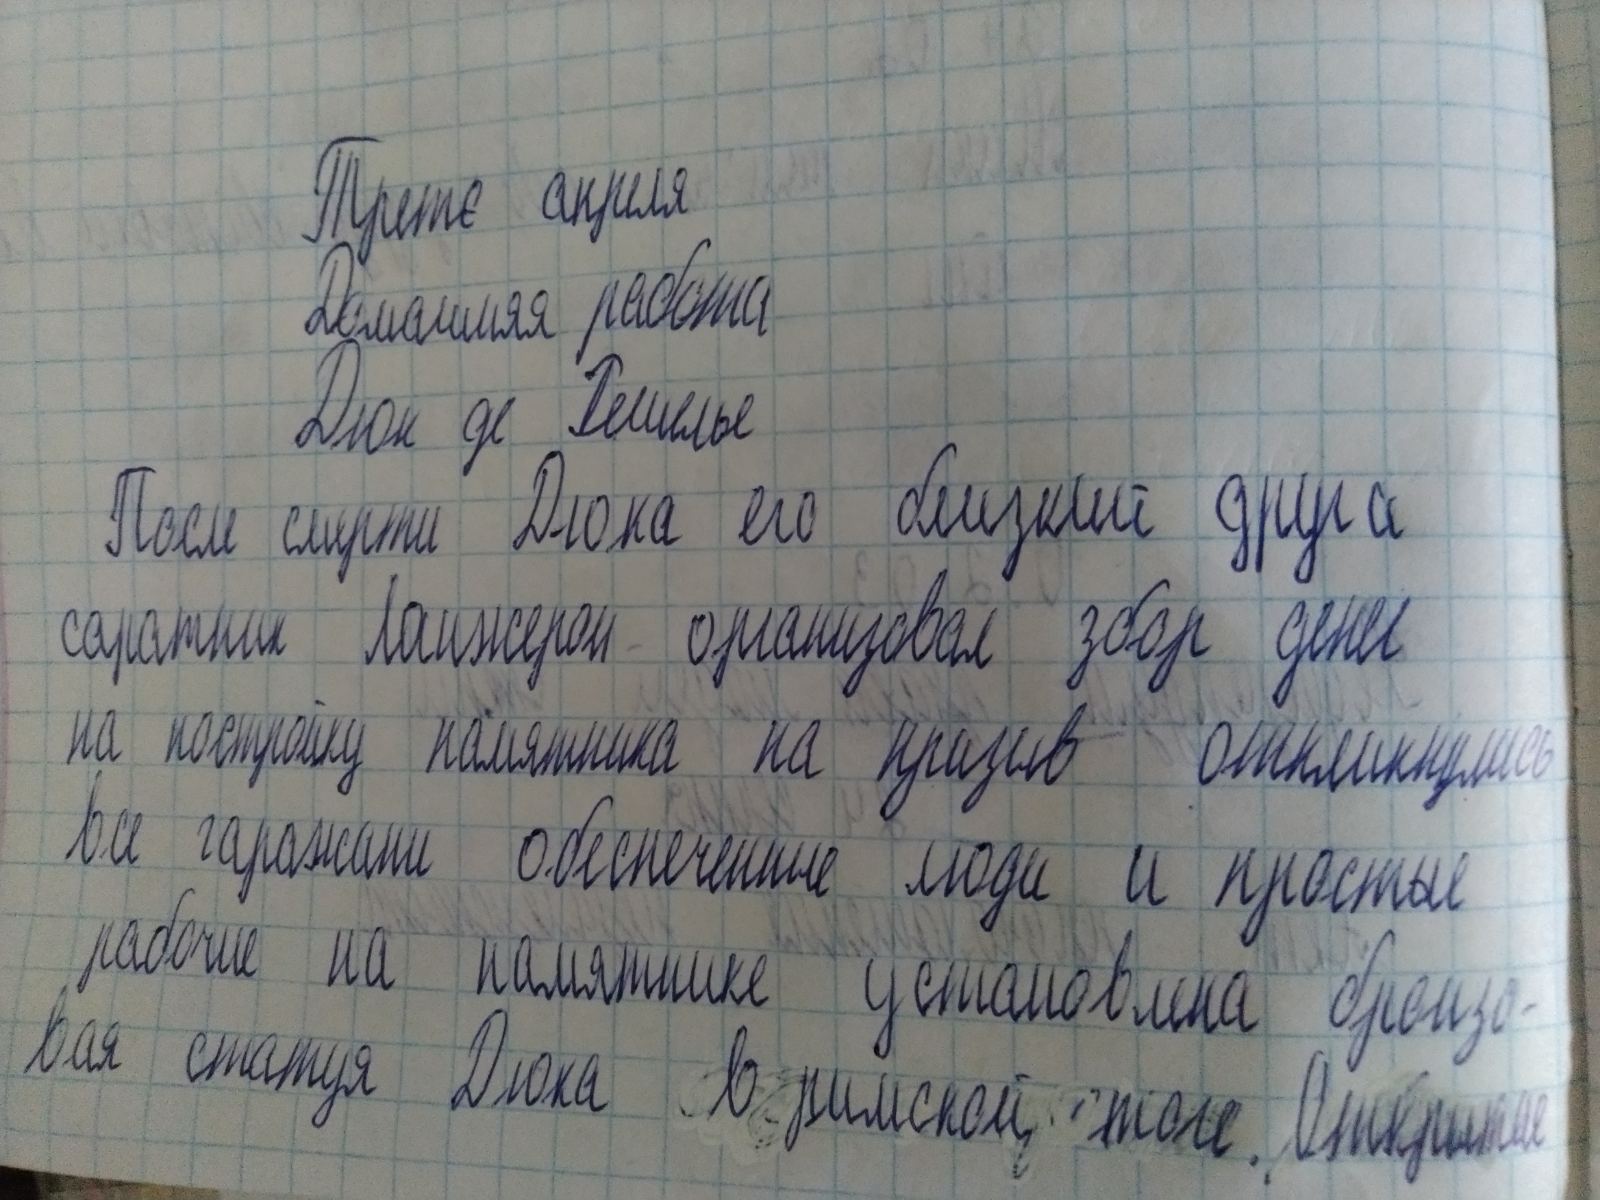 Третє апреля
Домашняя работа
Дюк де Решелье
После смерти Дюка его близкий друг и
соратник Ланжерон организовал збор денег
на постройку памятника на призыв откликнулись
все гаражани обеспеченные люди и простые
рабочие на памятнике установлена бронзо-
вая статуя Дюка в римской тоге. Открытие